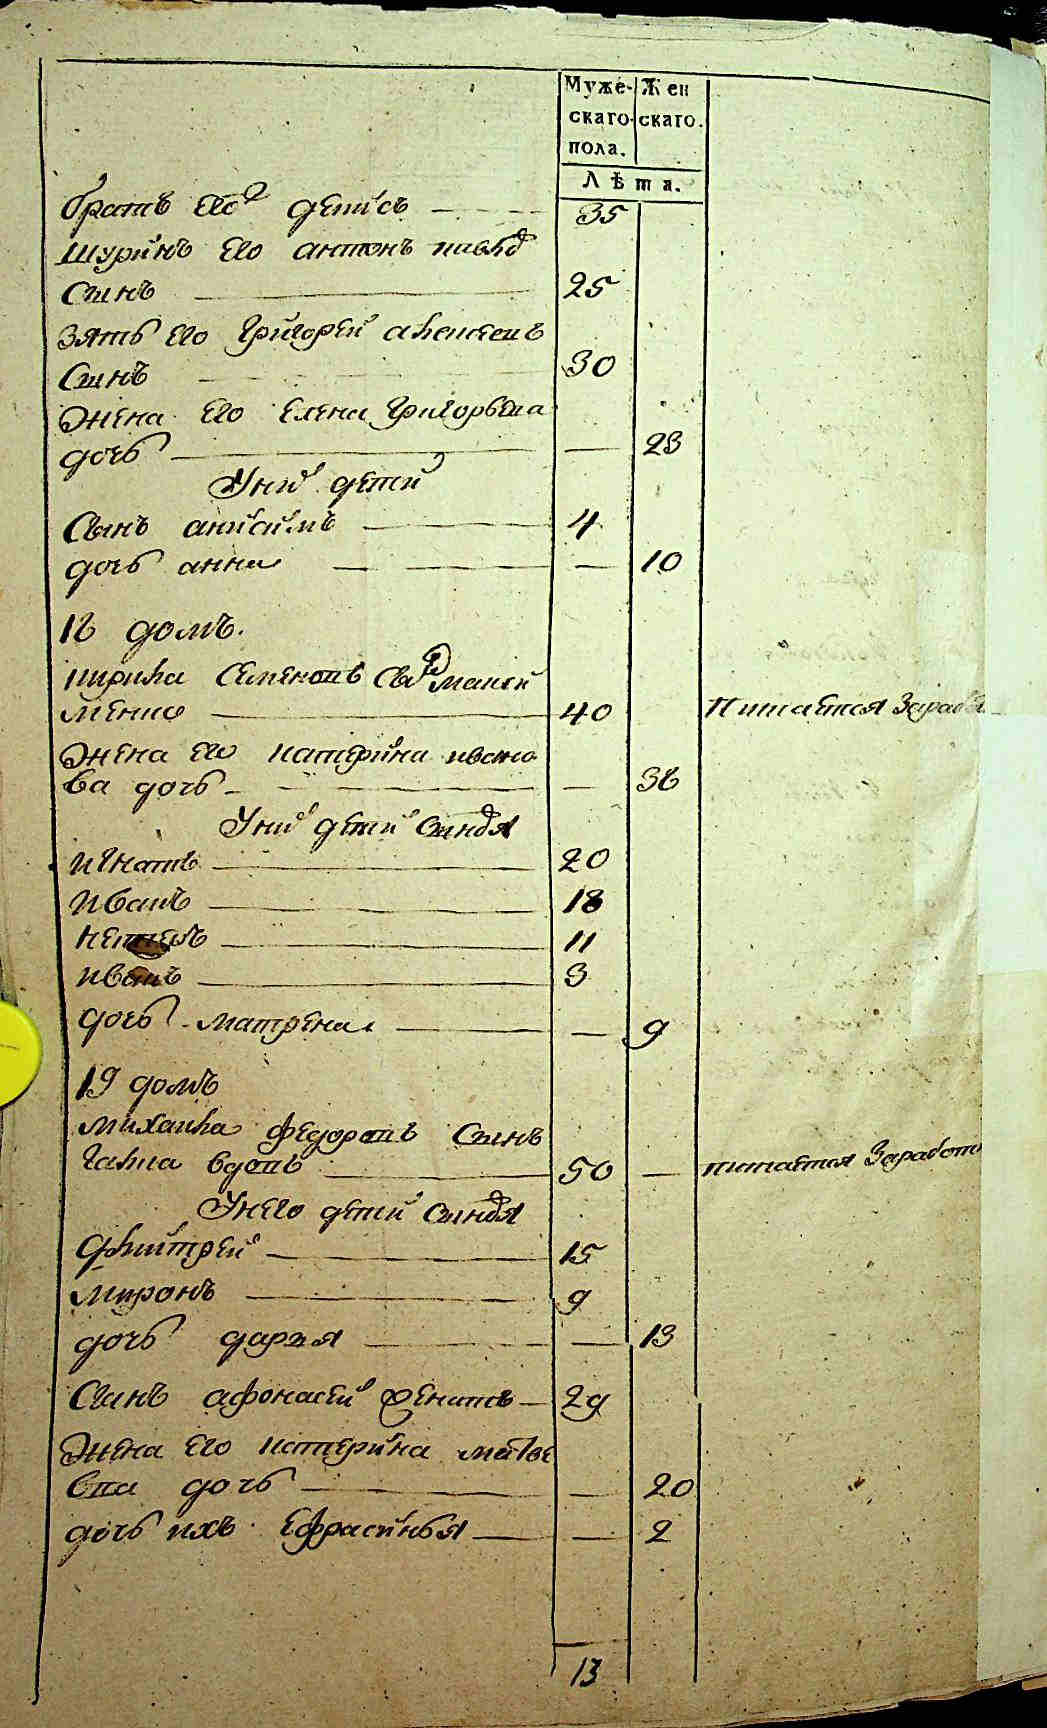 Муже- Жен
скаго скаго.
пола.
Лѣта.
братъ его денисъ 35
шуринъ его антонъ павло
сынъ 25
зять его григорей алексеевъ
сынъ 30
жена его елена григорьева
дочь 23
У них дети
сынъ анисимъ 4
дочь анна 10
18 домъ.
кирила семеновъ сынъ
40 питается зарабо
жена его катерина ивано
ва дочь 38
У них дети сыновя
игнатъ 20
иванъ 18
11
иванъ 3
дочь матрена 9
19 домъ
михаила федоровъ сынъ
вдовъ 50 питается заработ
У него дети сыновя
дмитрей 15
миронъ 9
дочь дарья 13
сынъ афонасей женатъ 29
жена его катерина матве
ева дочь 20
дочь ихъ ефрасинья 2
13